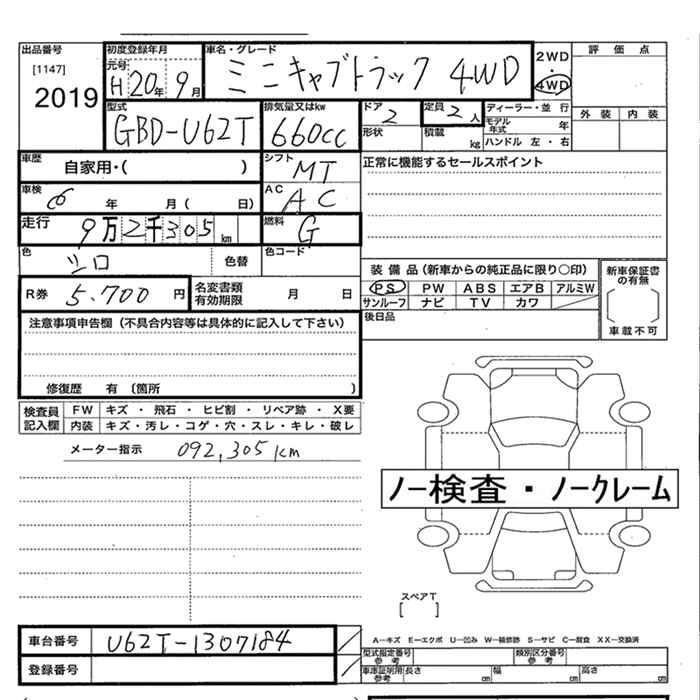 出品番号
[1147]
2019
初度登録年月
元号
H20年 9月
車名・グレード
ミニキャブトラック 4WD
2WD
・
4WD
評 価 点
外 装 内 装
型式
GBD-U62T
排気量又はkw
660cc
ドア
2
形状
定員
2人
積載
kg
ディーラー・並 行
モデル年式 年
ハンドル 左 ・ 右
車歴
自家用・( )
シフト
MT
正常に機能するセールスポイント
車検
6 年 月( 日)
AC
AC
走行
9万2千305km
燃料
G
色
シロ
色替
色コード
装 備 品(新車からの純正品に限り○印)
PS PW ABS エアB アルミW
サンルーフ ナビ TV カワ
新車保証書の有無
車載不可
R券 5.700 円
名変書類有効期限 月 日
後日品
注意事項申告欄(不具合内容等は具体的に記入して下さい)
修復歴 有 (箇所 )
検査員記入欄
FW キズ ・ 飛石 ・ ヒビ割 ・ リペア跡 ・ X要
内装 キズ・汚レ・コゲ・穴・スレ・キレ・破レ
メーター指示 092,305km
ノー検査・ノークレーム
スペアT
[ ]
車台番号 U62T-1307184
登録番号
A―キズ E―エクボ U―凹み W―補修跡 S―サビ C―腐食 XX―交換済
型式指定番号 参考
類別区分番号 参考
車庫証明用 参考 長さ cm 幅 cm 高さ cm